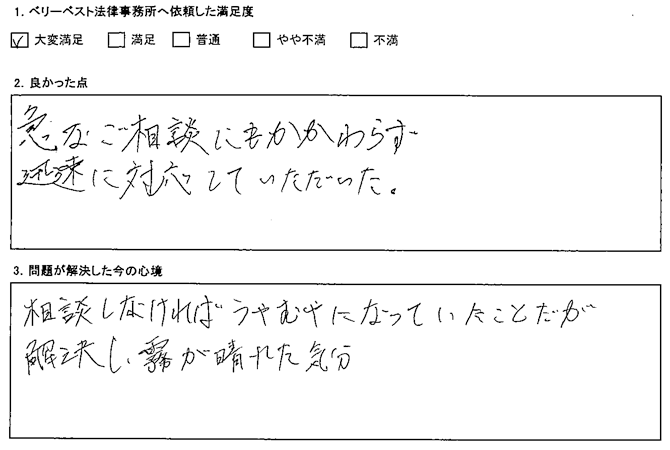 1. ベリーベスト法律事務所へ依頼した満足度
☑ 大変満足 □ 満足 □ 普通 □ やや不満 □ 不満
2. 良かった点
急なご相談にもかかわらず
迅速に対応していただいた。
3. 問題が解決した今の心境
相談しなければうやむやになっていたことだが
解決し、霧が晴れた気分